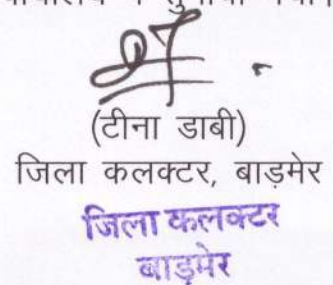 (टीना डाबी)
जिला कलक्टर, बाड़मेर
जिला कलक्टर
बाड़मेर